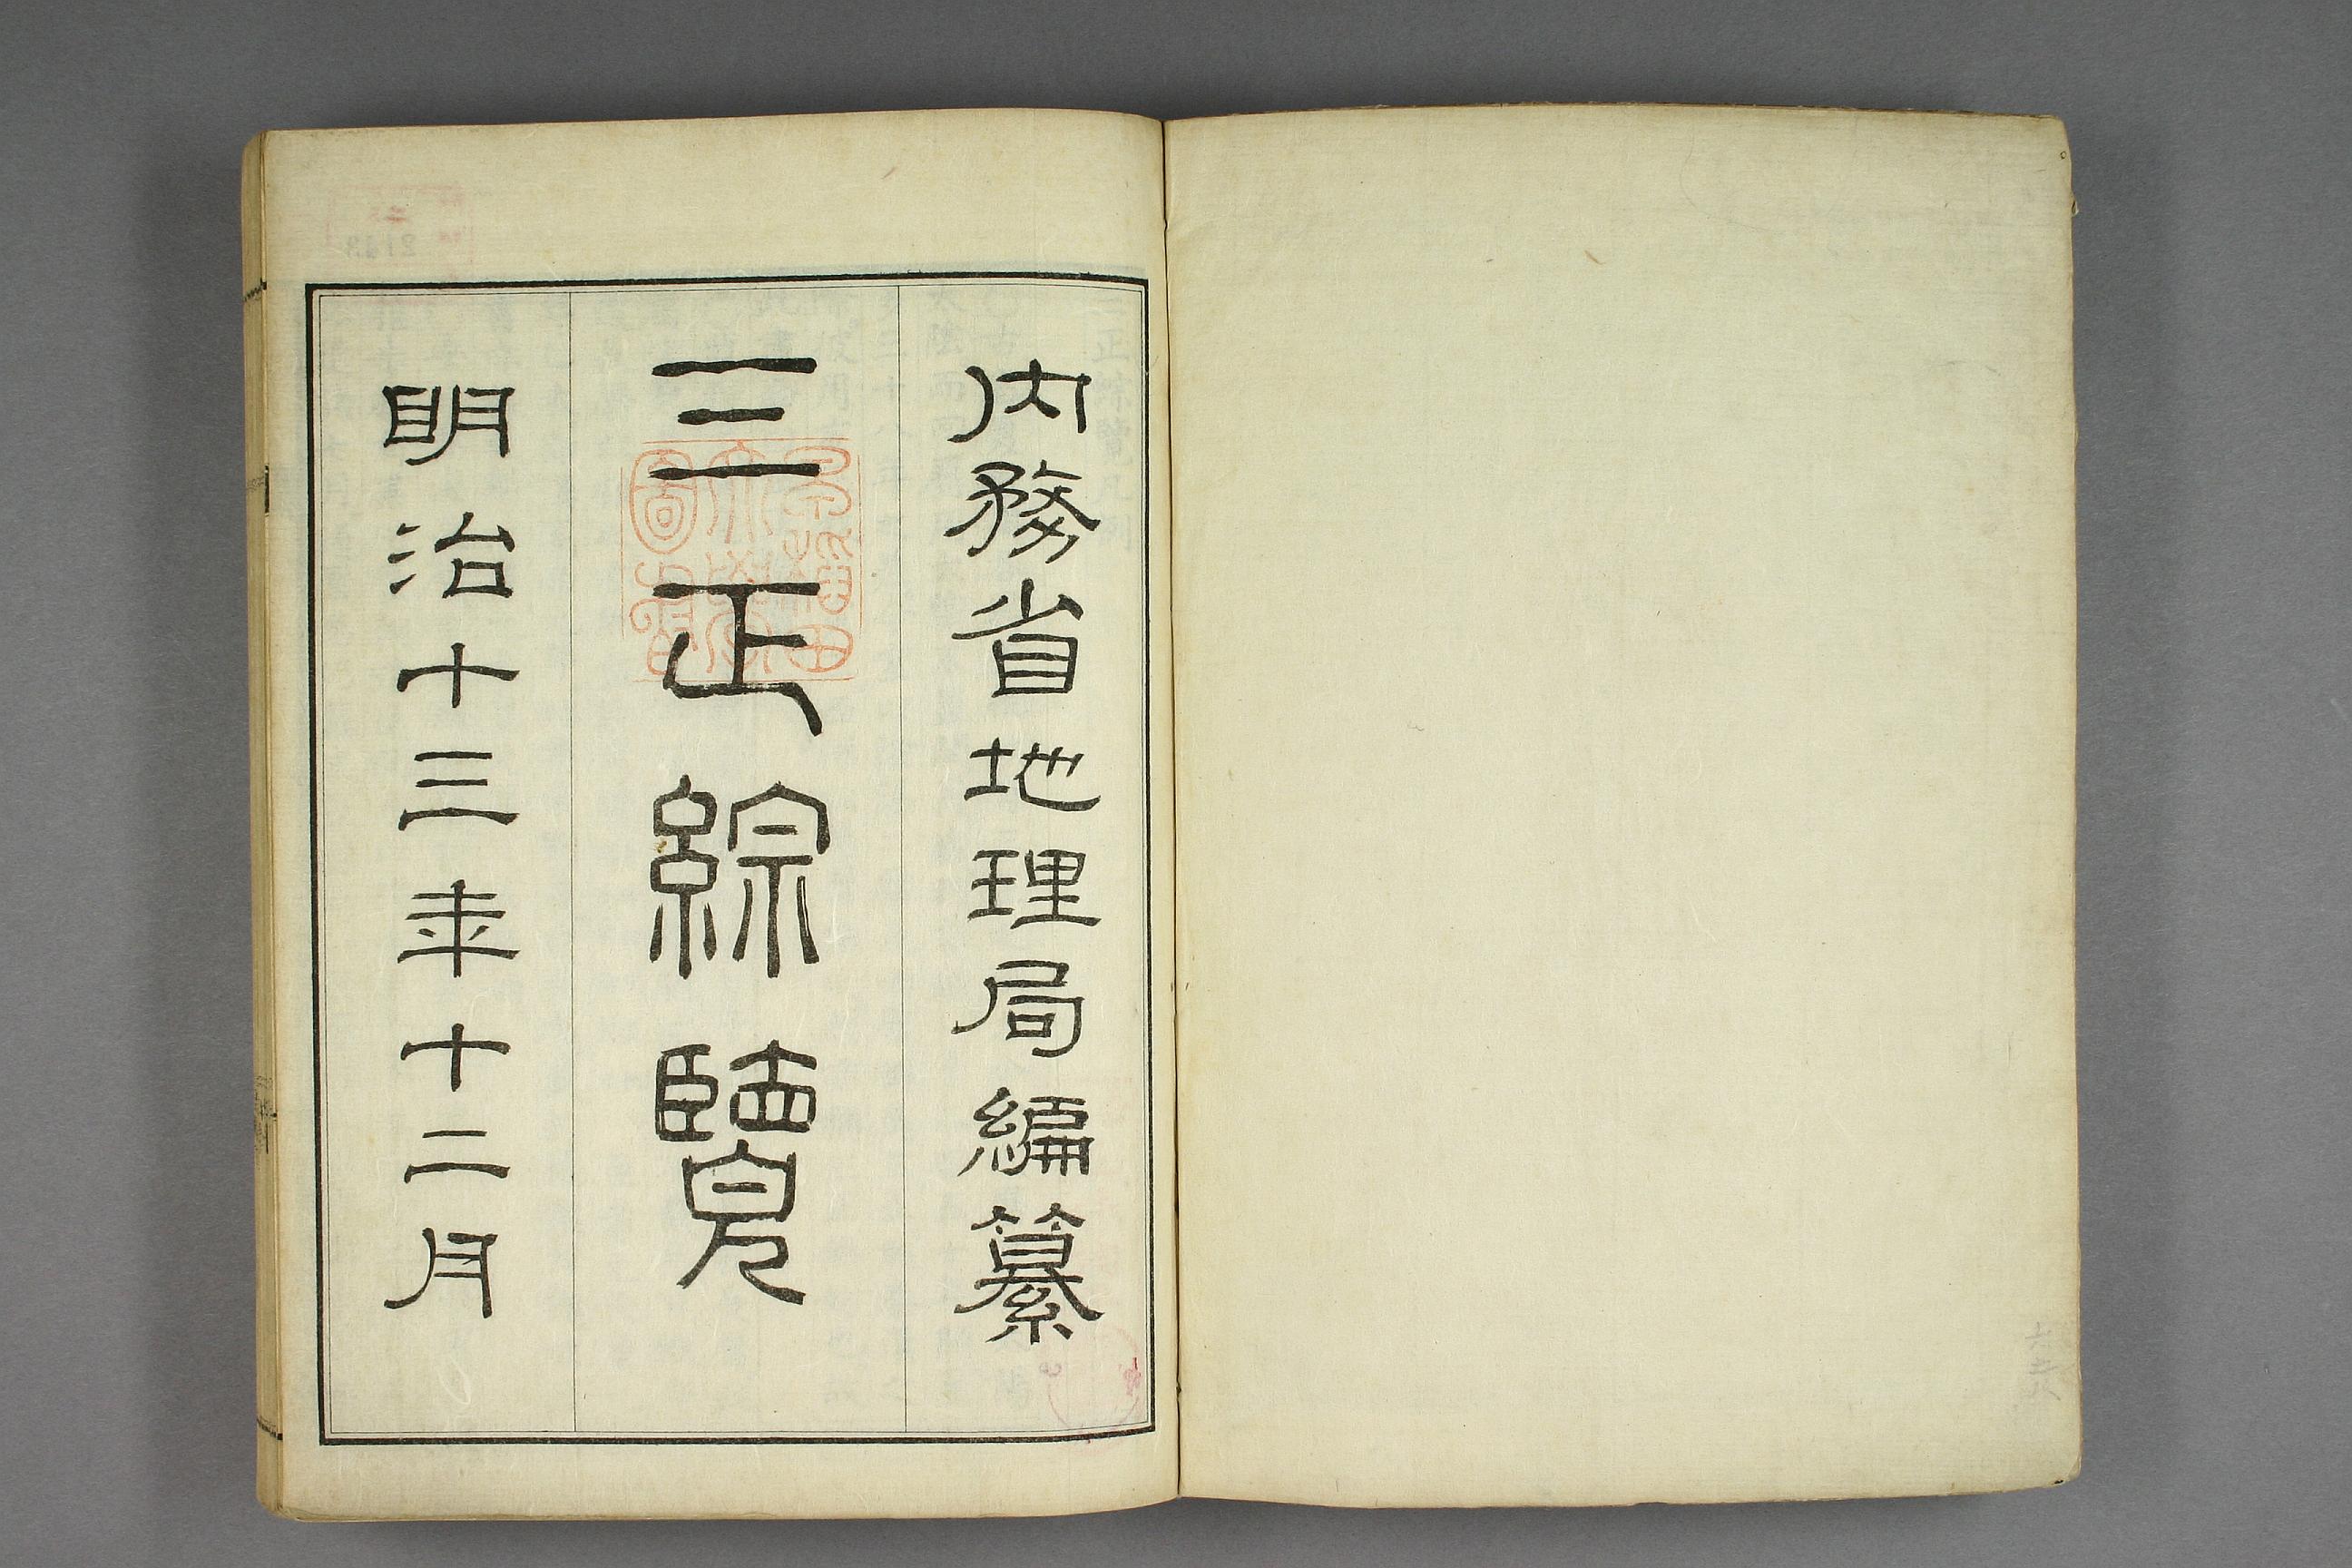 内務省地理局編纂
三正綜覽
明治十三年十二月